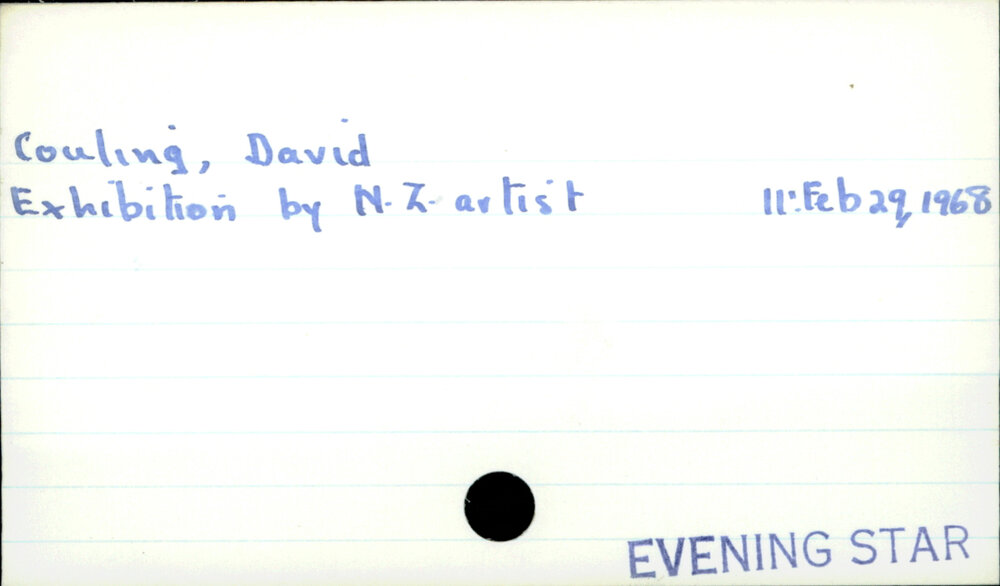 Couling, David
Exhibition by N.Z. artist 11:Feb 29, 1968
EVENING STAR